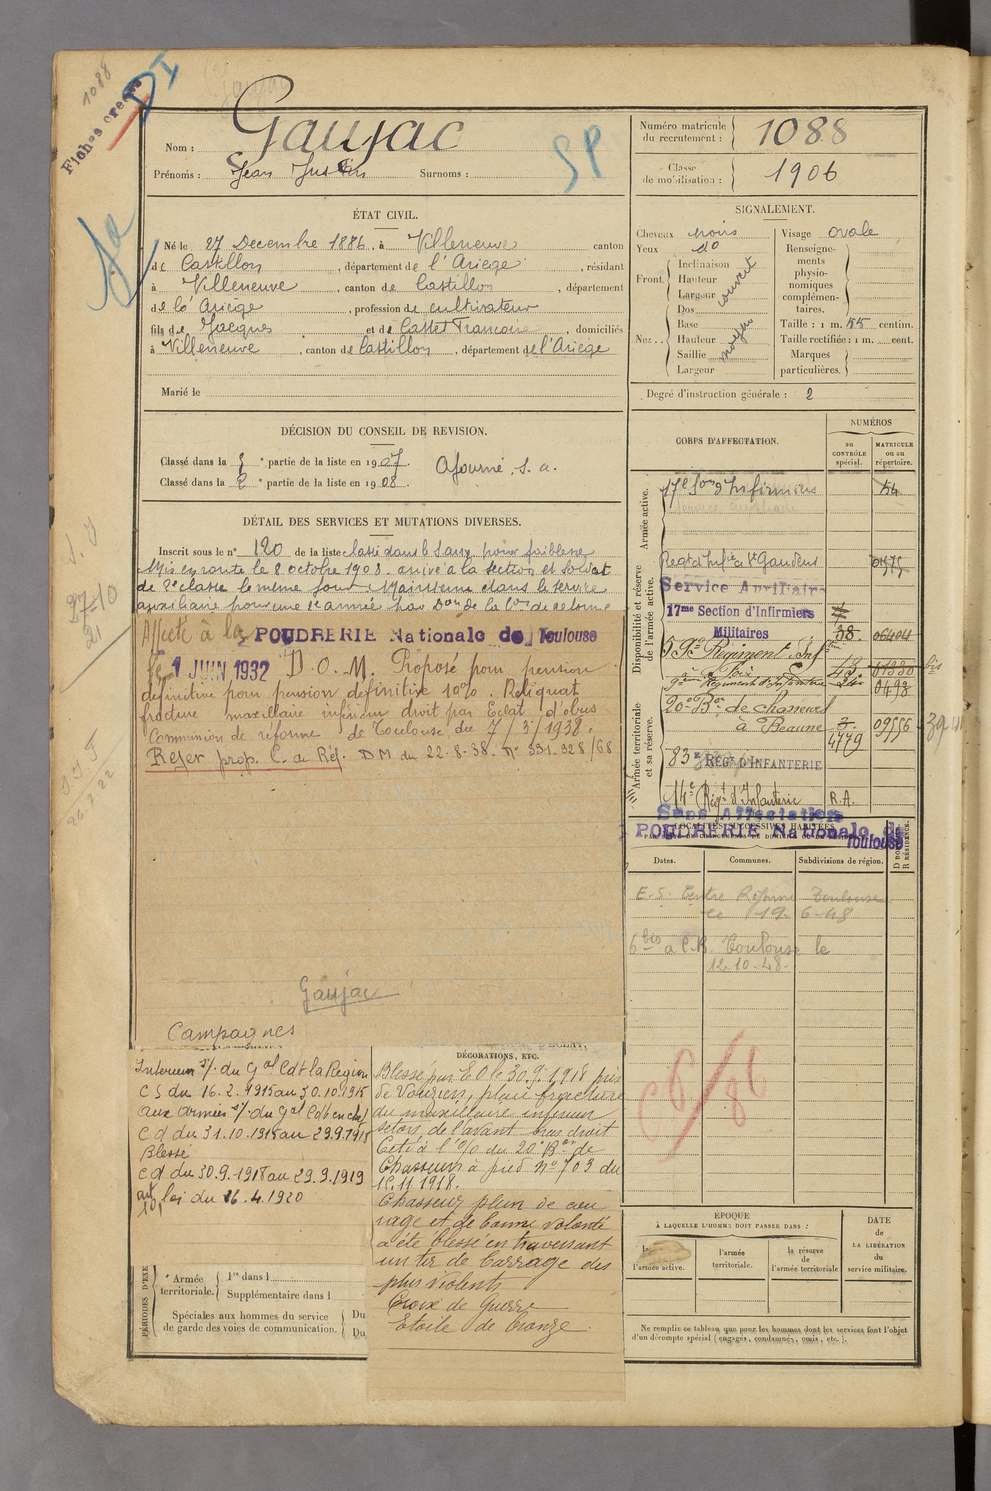 1088
Fiches creées
DI
Nom : Gaujac
Prénoms : Jean Justin Surnoms :
SP
Numéro matricule du recrutement : 1088
Classe de mobilisation : 1906
ÉTAT CIVIL.
Né le 27 Decembre 1886, à Villeneuve canton
de Castillon, département de l'Ariège, résidant
à Villeneuve, canton de Castillon, département
de l'Ariège, profession de cultivateur
fils de Jacques et de Castet Francoise, domiciliés
à Villeneuve, canton de Castillon, département de l'Ariège
Marié le
SIGNALEMENT.
Cheveux noirs
Yeux do
Front. Inclinaison
Hauteur
Largeur
couvert
Nez. Dos
Base
Hauteur
Saillie
Largeur
moyen
Visage ovale
Renseignements physionomiques complémentaires.
Taille : 1 m. 55 centim.
Taille rectifiée : 1 m. cent.
Marques particulières.
Degré d'instruction générale : 2
DÉCISION DU CONSEIL DE REVISION.
Classé dans la 5e partie de la liste en 1907. Ajourné. S. a.
Classé dans la 2e partie de la liste en 1908.
DÉTAIL DES SERVICES ET MUTATIONS DIVERSES.
Inscrit sous le n° 120 de la liste classé dans le S. aux. pour faiblesse
Mis en route le 8 octobre 1908. arrivé à la section et soldat
de 2e classe le meme jour. Maintenu dans le service
auxiliaire pour une 2e année par Don de la Con de reforme
Affecté à la POUDRERIE Nationale de Toulouse
le 1 JUIN 1932 D. O. M. Proposé pour pension
définitive pour pension définitive 10%. Reliquat
fracture maxillaire inférieur droit par Eclat d'obus
Commission de réforme de Toulouse du 7/3/1938.
Rejet prop. C. de Réf. DM du 22-8-38. N° 331.928/68
Gaujac
CORPS D'AFFECTATION.
NUMÉROS
au CONTRÔLE spécial.
MATRICULE ou au répertoire.
Armée active.
17e Son d'Infirmiers 54
Service Auxiliaire
Disponibilité et réserve de l'armée active.
Regt d'Infie de St Gaudens
Service Auxiliaire
17me Section d'Infirmiers
Militaires 38. 06404
59e Régiment Inf
Foix
9e Régiment d'Infanterie 0498
20e Bon de Chasseurs
à Beaune 4779 09556
Armée territoriale et sa réserve.
83e RÉGt D'INFANTERIE
14e Régt d'Infanterie R.A.
Sans Affectation
POUDRERIE Nationale de Toulouse
LOCALITÉS SUCCESSIVES HABITÉES
Dates. Communes. Subdivisions de région.
D DOMICILE. R RÉSIDENCE.
E.S. Centre Réforme Toulouse
le 19-6-48
6 bis à C.R. Toulouse le
12-10-48-
Campagnes
Interieur s/. du Gal Cdt la Region
CS du 16.2.1915 au 30.10.1915
aux armées s/. du Gal Cdt en chef
Cd du 31.10.1915 au 29.9.1918
Blessé
Cd du 30.9.1918 au 29.3.1919
art loi du 16.4.1920
DÉCORATIONS, ETC.
Blessé par E O le 30.9.1918 près
de Vouziers, plaie fracture
du maxillaire inferieur
setons de l'avant bras droit
Cité à l'o/o du 20e Bon de
Chasseurs à pied n° 703 du
12.11.1918.
Chasseur plein de cou
rage et de bonne volonté
a été blessé en traversant
un tir de barrage des
plus violents
Croix de Guerre
Etoile de bronze.
PÉRIODES D'EXE
Armée territoriale.
1re dans l
Supplémentaire dans l
Spéciales aux hommes du service de garde des voies de communication.
Du
Du
ÉPOQUE
À LAQUELLE L'HOMME DOIT PASSER DANS :
l'armée active.
l'armée territoriale.
la réserve de l'armée territoriale
DATE de LA LIBÉRATION du service militaire.
Ne remplir ce tableau que pour les hommes dont les services font l'objet
d'un décompte spécial (engagés, condamnés, omis, etc.).